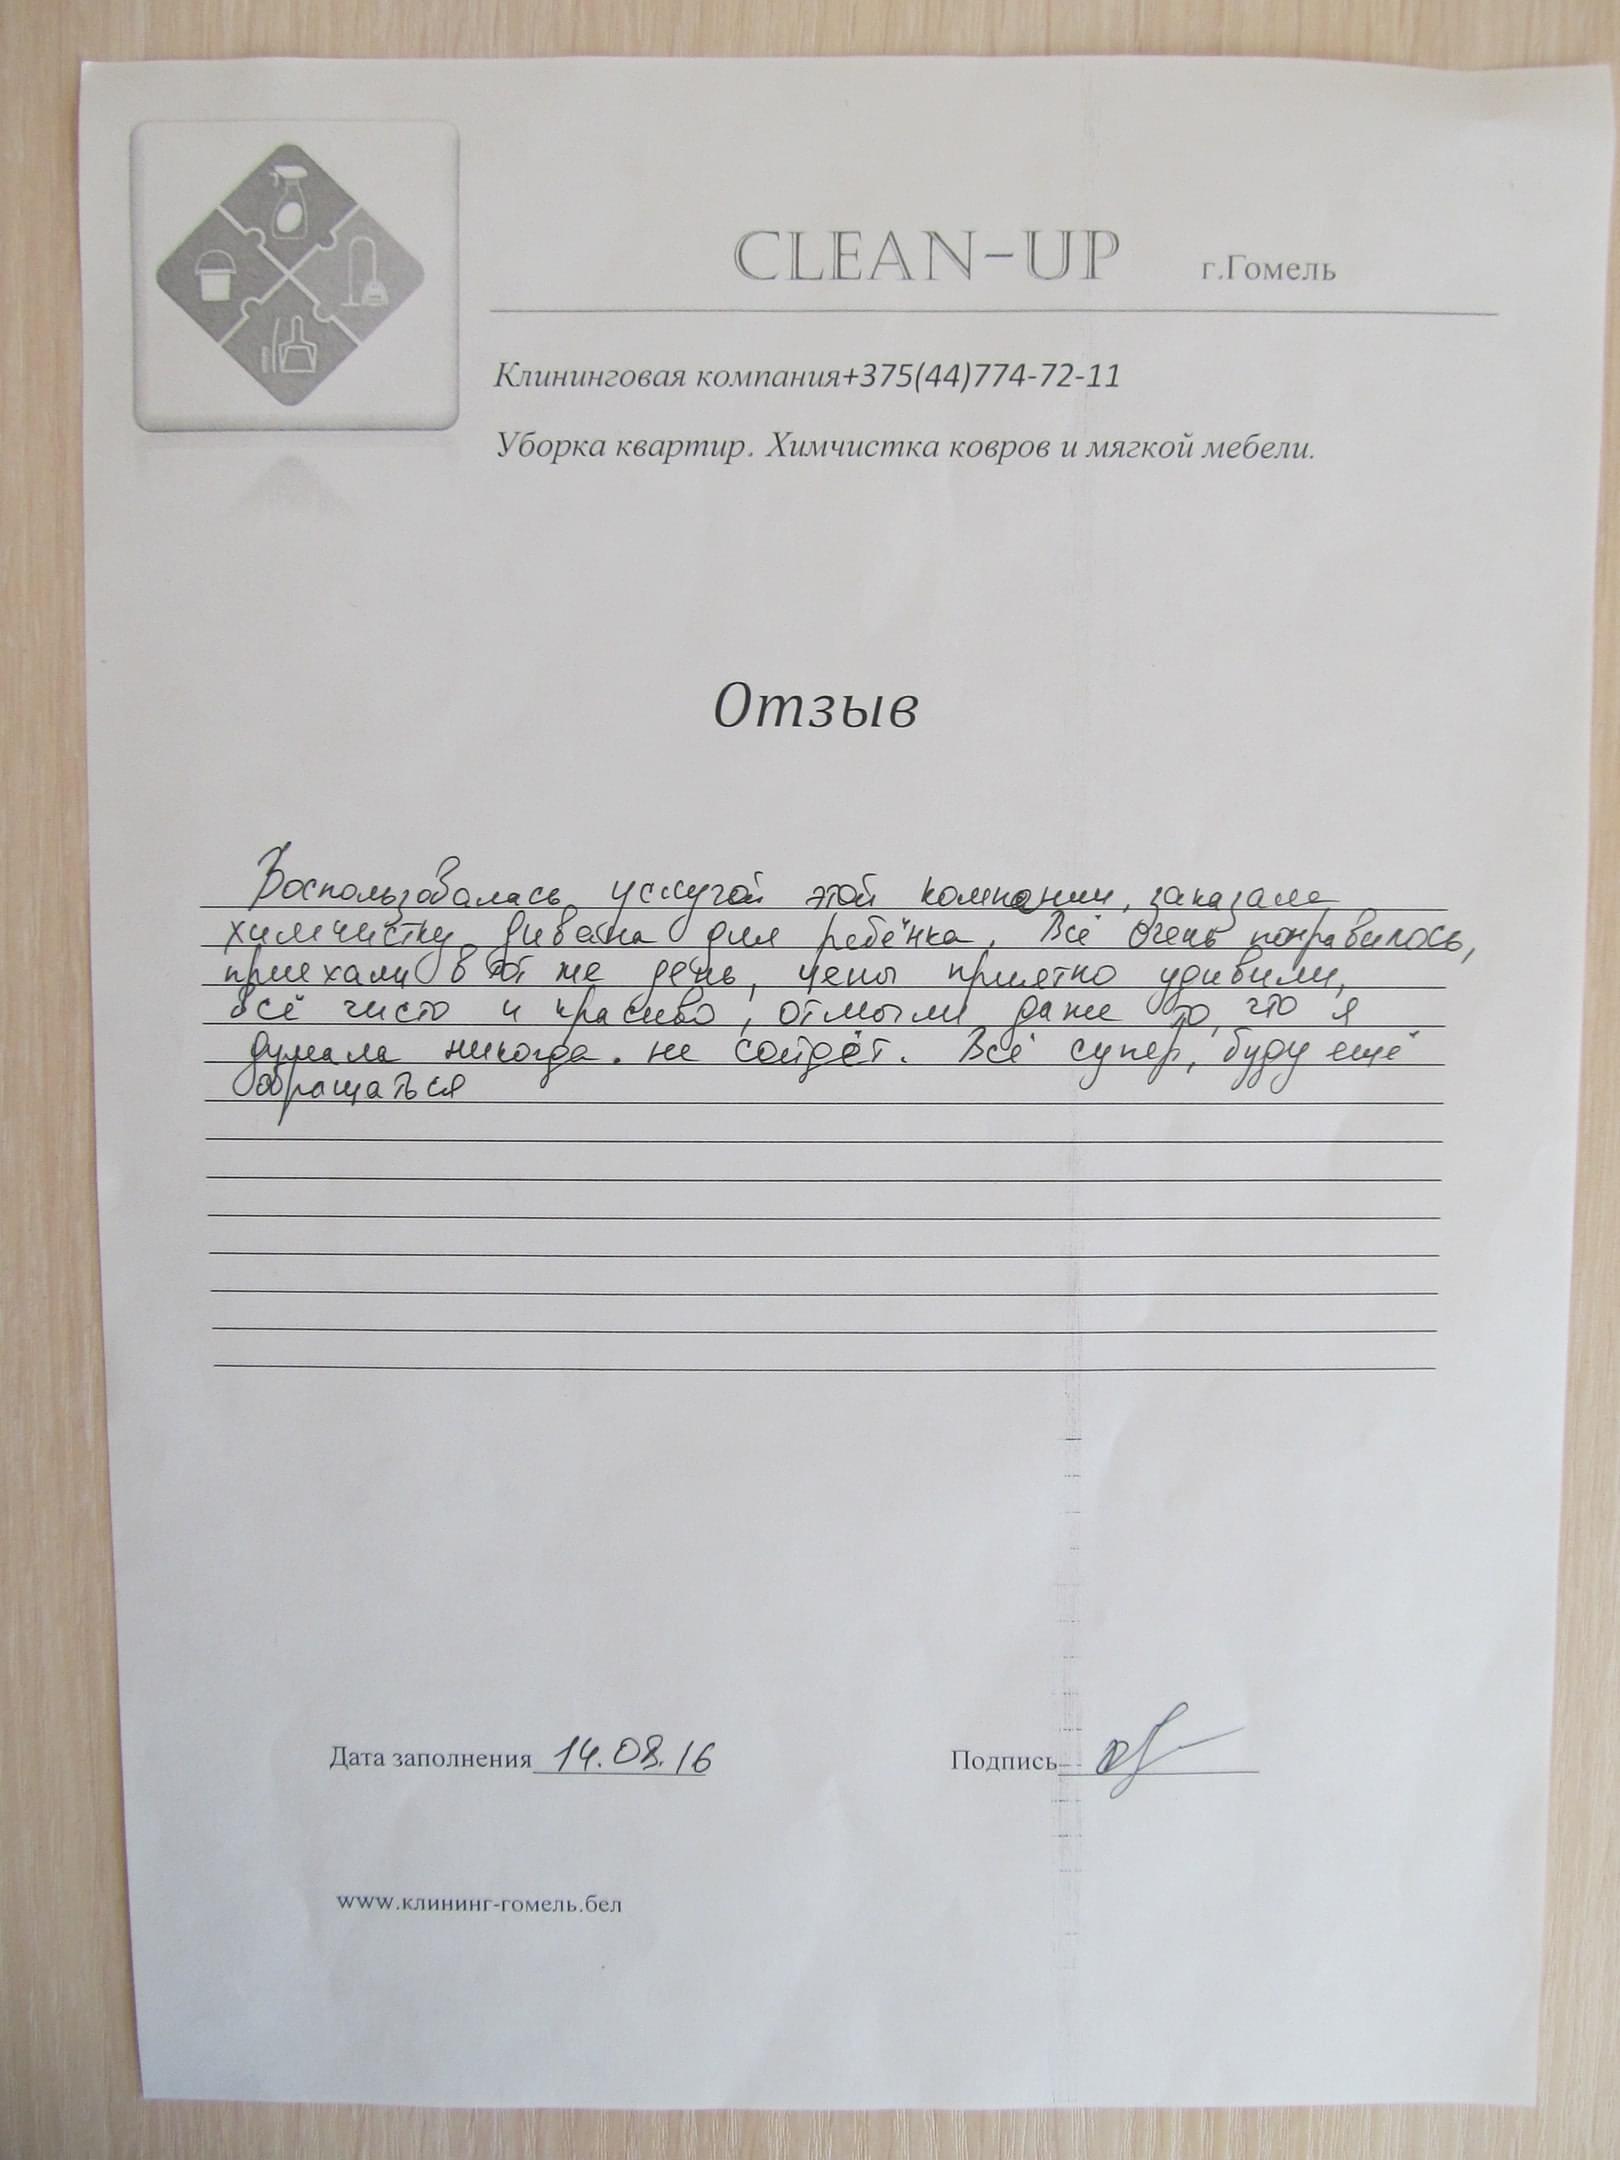 CLEAN-UP г.Гомель
Клининговая компания+375(44)774-72-11
Уборка квартир. Химчистка ковров и мягкой мебели.
Отзыв
Воспользовалась услугой этой компании, заказала
химчистку дивана для ребёнка. Всё очень понравилось,
приехали в тот же день, цены приятно удивили,
всё чисто и красиво, отмыли даже то, что я
думала никогда не сойдёт. Всё супер, буду ещё
обращаться
Дата заполнения 14.08.16 Подпись
www.клининг-гомель.бел